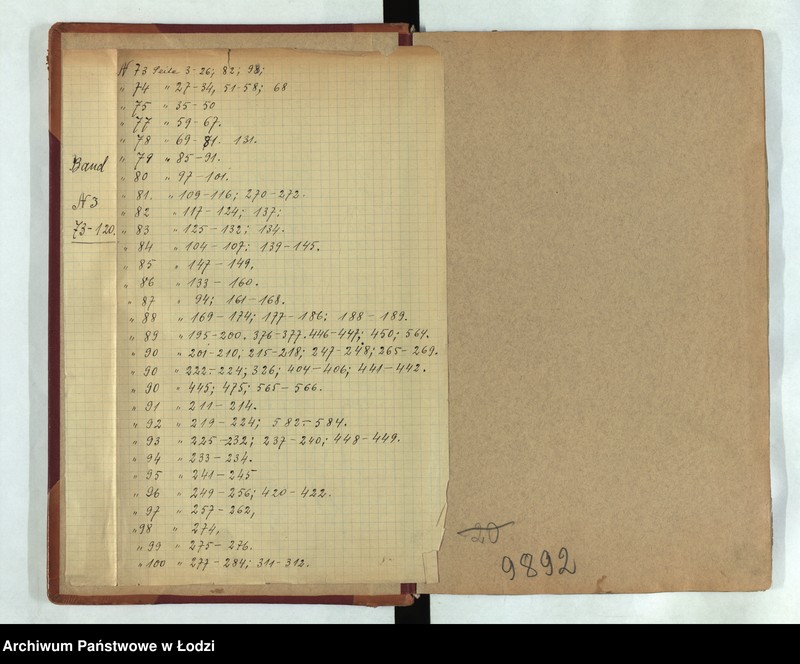 Band
N 3
73-120.
N 73 Seite 3-26; 82; 98;
" 74 " 27-34, 51-58; 68
" 75 " 35-50
" 77 " 59-67.
" 78 " 69-81. 131.
" 79 " 85-91.
" 80 " 97-101.
" 81. " 109-116; 270-272.
" 82 " 117-124; 137;
" 83 " 125-132; 134.
" 84 " 104-107; 139-145.
" 85 " 147-149,
" 86 " 133-160.
" 87 " 94; 161-168.
" 88 " 169-174; 177-186; 188-189.
" 89 " 195-200. 376-377. 446-447; 450; 564.
" 90 " 201-210; 215-218; 247-248; 265-269.
" 90 " 222-224; 326; 404-406; 441-442.
" 90 " 445; 475; 565-566.
" 91 " 211-214.
" 92 " 219-224; 582-584.
" 93 " 225-232; 237-240; 448-449.
" 94 " 233-234.
" 95 " 241-245
" 96 " 249-256; 420-422.
" 97 " 257-262,
" 98 " 274,
" 99 " 275-276.
" 100 " 277-284; 311-312.
20
9892
Archiwum Państwowe w Łodzi